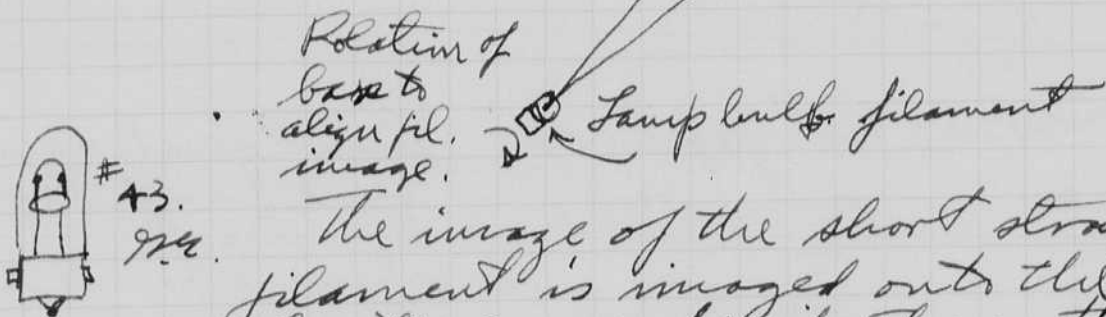 Rotation of
base to
align fil.
image.
Lamp bulb filament
# 43.
The image of the short
filament is imaged onto the